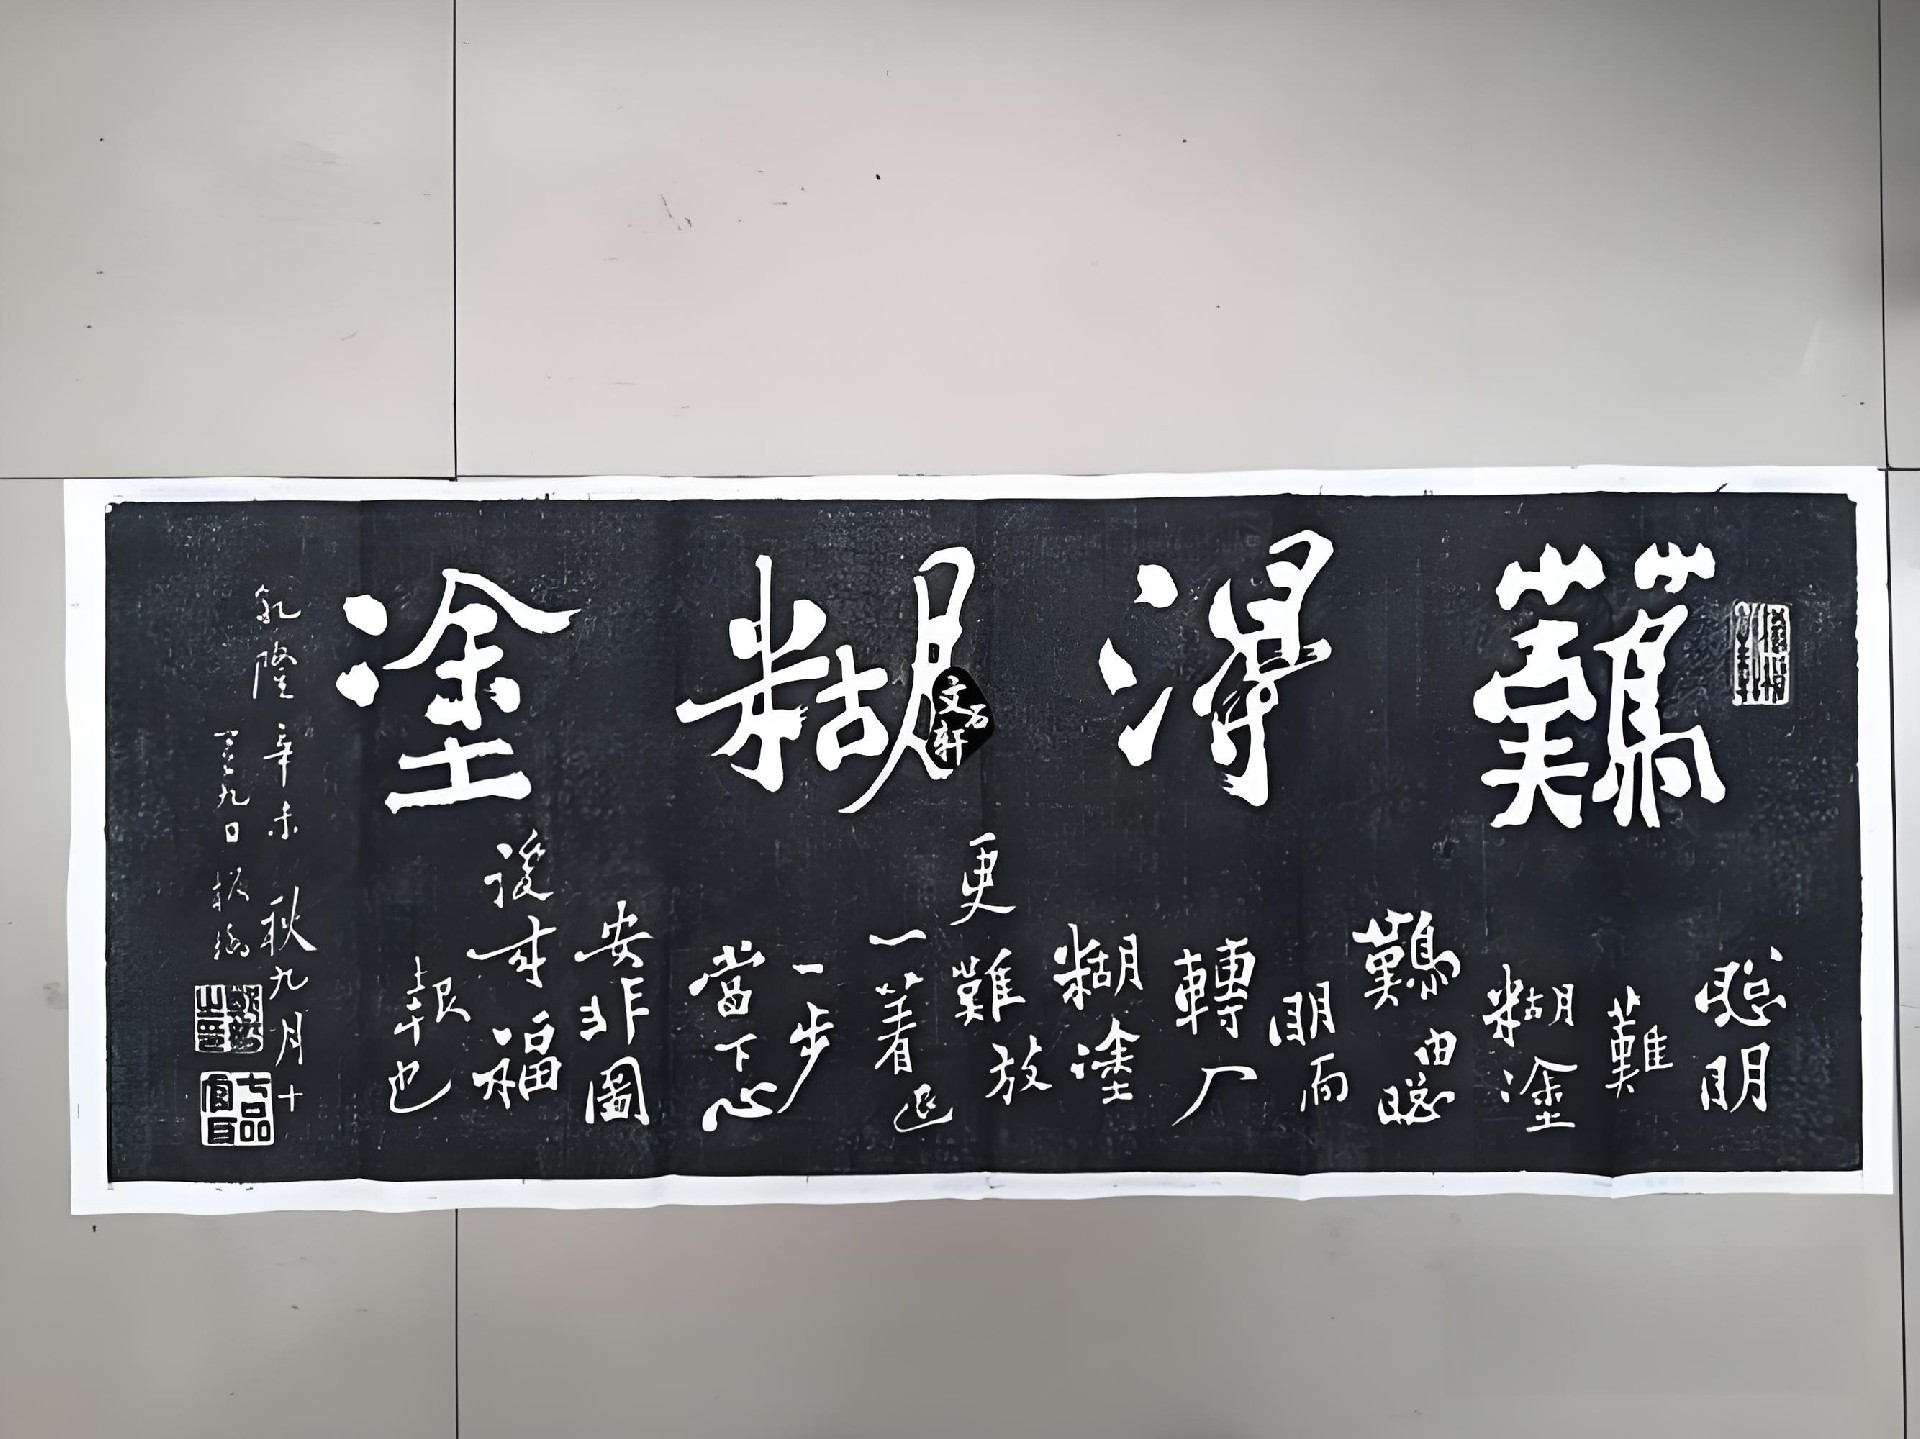 難得糊塗
聰明
難
糊塗
難由聰
明而
轉入
糊塗
更難放
一着退
一步
當下心
安非圖
後來福
報也
乾隆辛未秋九月十
九日板橋
鄭燮之印
七品官耳
文石轩